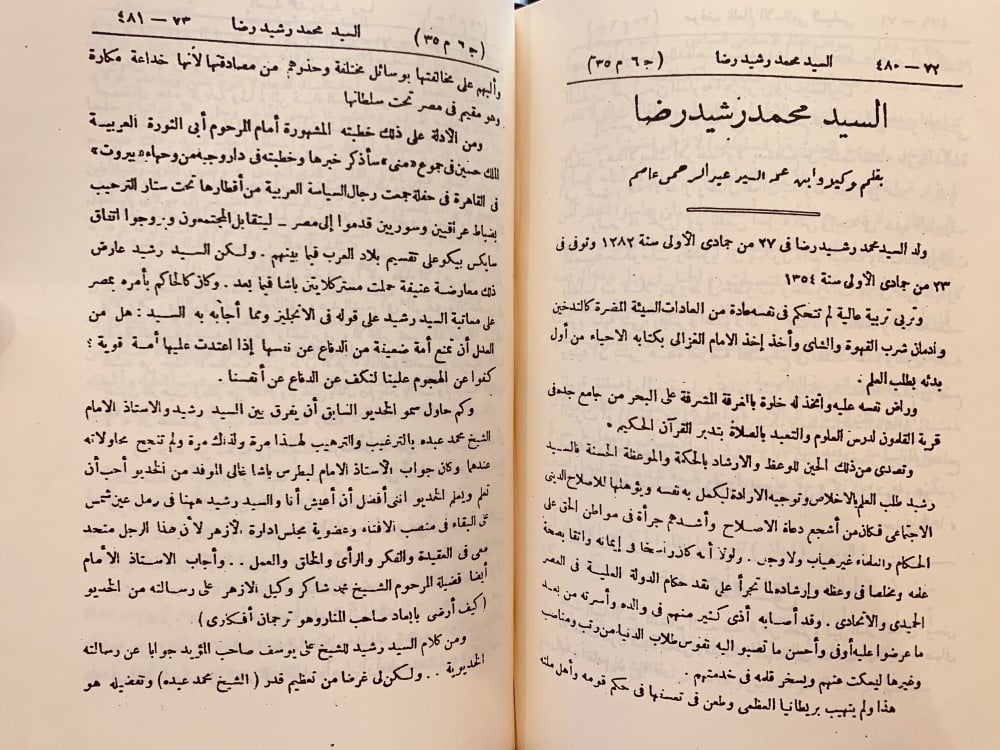 ٧٢ — ٤٨٠ السيد محمد رشيد رضا ( ج ٦ م ٣٥ )
السيد محمد رشيد رضا
بقلم وكيله وابن عمه السيد عبد الرحمن عاصم
ولد السيد محمد رشيد رضا فى ٢٧ من جمادى الأولى سنة ١٢٨٢ وتوفى فى
٢٣ من جمادى الأولى سنة ١٣٥٤
وتربى تربية عالية لم تتحكم فى نفسه عادة من العادات السيئة المضرة كالتدخين
وإدمان شرب القهوة والشاى وأخذ إخذ الامام الغزالى بكتابه الاحياء من أول
بدئه بطلب العلم .
وراض نفسه عليه واتخذ له خلوة بالغرفة المشرفة على البحر من جامع جده فى
قرية القلمون لدرس العلوم والتعبد بالصلاة بتدبر القرآن الحكيم .
وتصدى من ذلك الحين للوعظ والارشاد بالحكمة والموعظة الحسنة فالسيد
رشيد طلب العلم بالاخلاص وتوجيه الارادة ليكمل به نفسه ويؤهلها للاصلاح الدينى
الاجتماعى فكان من أشجع دعاة الاصلاح وأشدهم جرأة فى مواطن الحق على
الحكام والعلماء غير هياب ولا وجل . ولولا أنه كان راسخا فى إيمانه واثقا بصحة
علمه ومخلصا فى وعظه وإرشاده لما تجرأ على نقد حكام الدولة العلية فى العصر
الحميدى والاتحادى . وقد أصابه أذى كثير منهم فى والده وأسرته من بعد
ما عرضوا عليه أوفى وأحسن ما تصبو اليه نفوس طلاب الدنيا من رتب ومناصب
وغيرها ليسكت عنهم ويسخر قلمه فى خدمتهم .
هذا ولم يتهيب بريطانيا العظمى وطعن فى تعسفها فى حكم قومه وأهل ملته
( ج ٦ م ٣٥ ) السيد محمد رشيد رضا ٧٣ — ٤٨١
وألبهم على مخالفتها بوسائل مختلفة وحذرهم من مصادقتها لأنها خداعة مكارة
وهو مقيم فى مصر تحت سلطانها
ومن الادلة على ذلك خطبته المشهورة أمام المرحوم أبى الثورة العربية
الملك حسين فى جموع «منى» سأذكر خبرها وخطبته فى دار وجيه من وجهاء «بيروت»
فى القاهرة فى حفلة جمعت رجال السياسة العربية من أقطارها تحت ستار الترحيب
بضباط عراقيين وسوريين قدموا إلى مصر — ليتقابل المجتمعون ويروجوا اتفاق
سايكس بيكو على تقسيم بلاد العرب فيما بينهم . ولكن السيد رشيد عارض
ذلك معارضة عنيفة حملت مستر كلايتن باشا فيما بعد . وكان كالحاكم بأمره بمصر
على معاتبة السيد رشيد على قوله فى الانجليز ومما أجابه به السيد : هل من
العدل أن تمنع أمة ضعيفة من الدفاع عن نفسها إذا اعتدت عليها أمة قوية ؟
كفوا عن الهجوم علينا لنكف عن الدفاع عن أنفسنا .
وكم حاول سمو الخديو السابق أن يفرق بين السيد رشيد والاستاذ الامام
الشيخ محمد عبده بالترغيب والترهيب لهذا مرة ولذلك مرة ولم تنجح محاولاته
عندهما وكان جواب الاستاذ الامام لبطرس باشا غالى الموفد من الخديو أحب أن
تعلم ويعلم الخديو اننى أفضل أن أعيش أنا والسيد رشيد ههنا فى رمل عين شمس
على البقاء فى منصب الافتاء وعضوية مجلس ادارة الازهر لأن هذا الرجل متحد
معى فى العقيدة والفكر والرأى والخلق والعمل . . وأجاب الاستاذ الأمام
أيضا فضيلة المرحوم الشيخ محمد شاكر وكيل الازهر على رسالته من الخديو
( كيف أرضى بابعاد صاحب المنار وهو ترجمان أفكارى )
ومن كلام السيد رشيد للشيخ على يوسف صاحب المؤيد جوابا عن رسالته
الخديوية . . ولكن لى غرضا من تعظيم قدر ( الشيخ محمد عبده ) وتفضيله هو